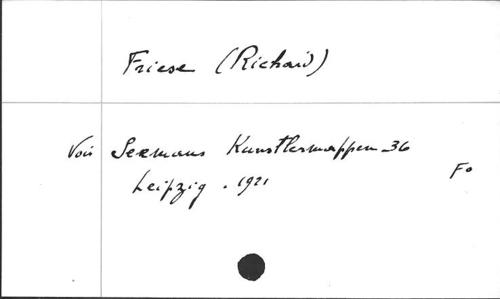 Friese (Richard)
Voir Seemans Kunstlermappen 36
Leipzig . 1921
Fo